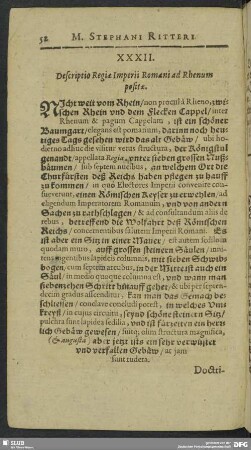 52 M. STEPHANI RITTERI
XXXII.
Descriptio Regiæ Imperii Romani ad Rhenum
positæ.
NJcht weit vom Rhein/ non procul â Rheno, zwi
schen Rhein vnd dem Flecken Cappel/ inter
Rhenum & pagum Cappelam, ist ein schöner
Baumgart/ elegans est pomarium, darinn noch heu
tiges Tags gesehen wird das alt Gebäw/ ubi ho-
dierno adhuc die visitur vetus structura, der Königstul
genandt/ appellata Regia, vnter sieben grossen Nuß
bäumen/ sub septem nucibus, an welchem Ort die
Churfürsten deß Reichs haben pflegen zu hauff
zu kommen/ in quo Electores Imperii convenire con-
sueverunt, einen Römischen Keyser zu erwehlen/ ad
eligendum Imperatorem Romanum, vnd von andern
Sachen zu rathschlagen/ & ad consultandum aliis de
rebus, betreffend die Wolfahrt deß Römischen
Reichs/ concernentibus salutem Imperii Romani. Es
ist aber ein Sitz in einer Mauer/ est autem sedile in
quodam muro, auff grossen steinern Säulen/
magnis lapideis columnis, mit sieben Schwib
bogen/ cum septem arcubus, in der Mitte ist auch ein
Säul/ in medio quoque columna est, vnd wann man
siebenzehen Schritt hinauff gehet/ & ubi per septende-
cim gradus ascenditur. Kan man das Gemach be
schliessen/ conclave concludi potest, in welches Vmb
kreyß/ in cujus circuitu, seynd schöne steinern Sitz/
pulchra sunt lapidea sedilia, vnd ist fürzeiten ein herr
lich Gebäw gewesen/ fuitq; olim structura magnifica,
& augusta, aber jetzt ists ein sehr verwüstet
vnd verfallen Gebäw/ ut jam
sunt rudera.
Docti-
SLUB